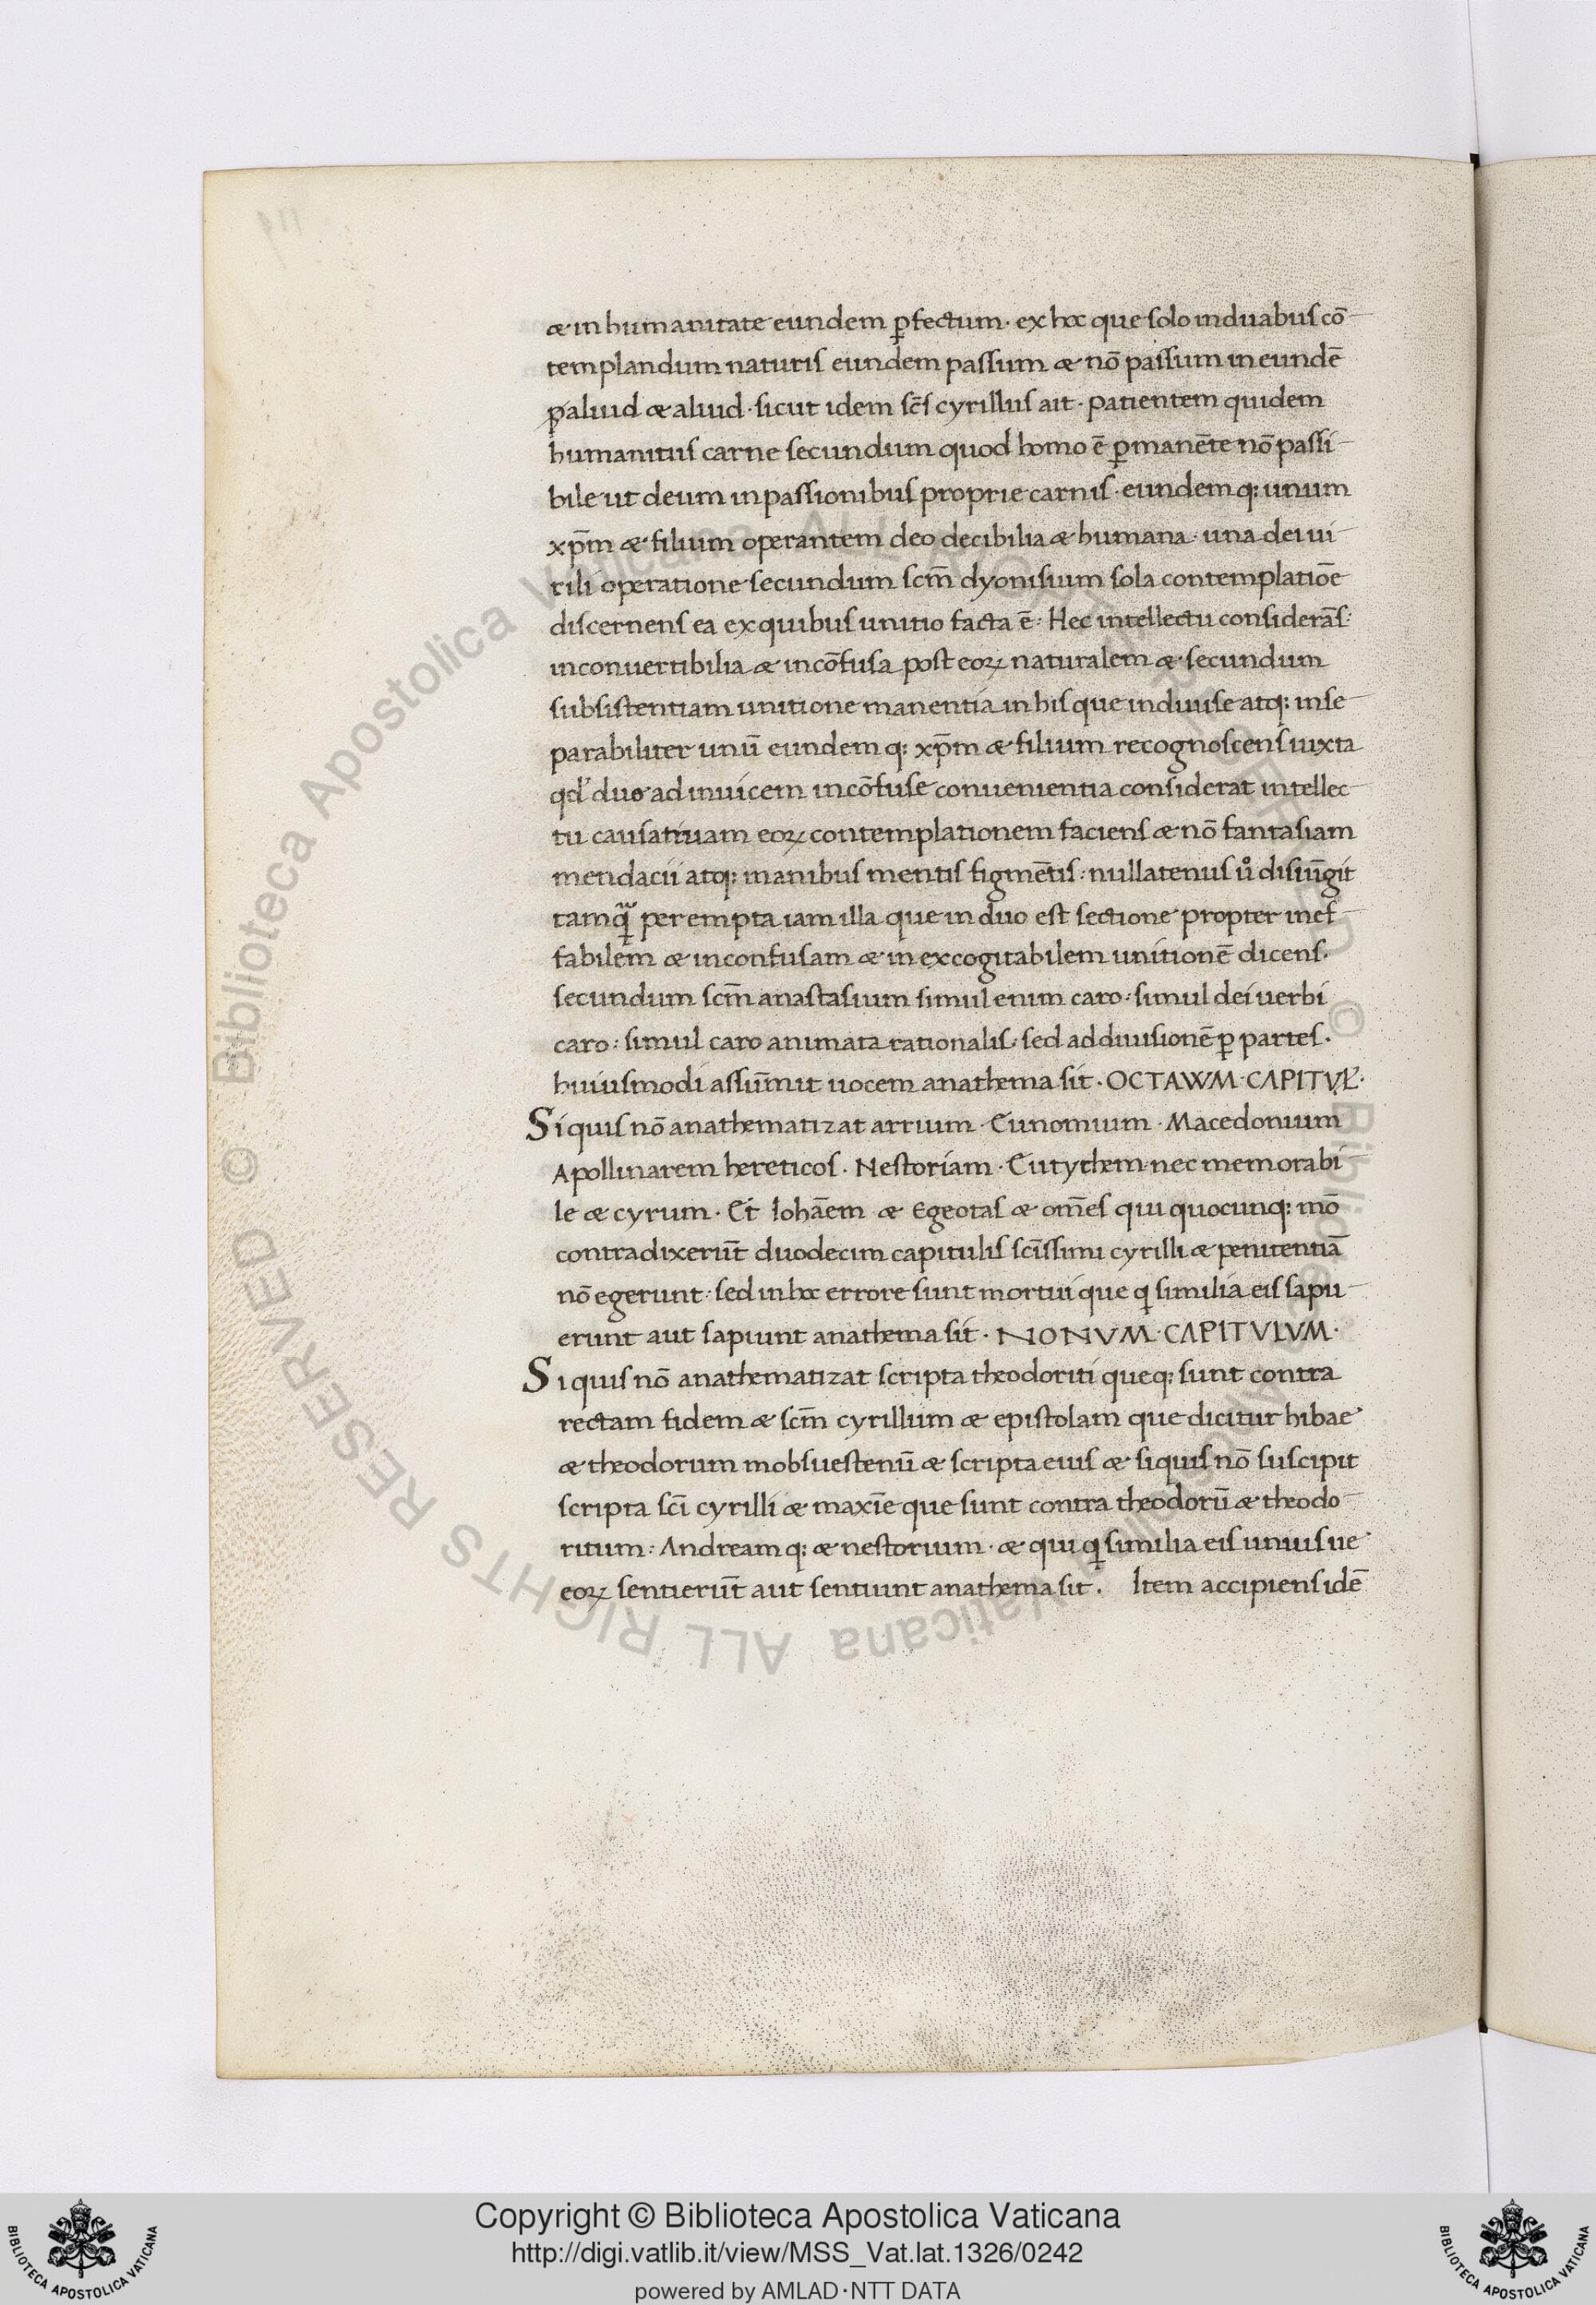 æ in humanitate eundem ꝑfectum· ex hoc que solo in duabus cō-
templandum naturis eundem passum æ nō passum in eundē
ꝑ aliud æ aliud· sicut idem sc̄s cyrillus ait· patientem quidem
humanitus carne secundum quod homo ē ꝑmanēte nō passi-
bile ut deum in passionibus proprie carnis· eundemq; unum
xp̄m æ filium operantem deo decibilia æ humana· una dei ui-
rili operatione secundum scm̄ dyonisium sola contemplatiōe
discernens ea ex quibus unitio facta ē· Hec intellectu considerās·
inconuertibilia æ incōfusa post eoꝝ naturalem æ secundum
subsistentiam unitione manentia in his que indiuise atq; inse-
parabiliter unū eundemq; xp̄m æ filium recognoscens iuxta
qd' duo adinuicem incōfuse conuenientia considerat intellec-
tu causatiuam eoꝝ contemplationem faciens æ nō fantasiam
mendacii atq; manibus mentis figmētis: nullatenus ů disiūgit
tamꝙ̄ perempta iam illa que in duo est sectione propter inef-
fabilem æ inconfusam æ inexcogitabilem unitionē dicens·
secundum scm̄ anastasium simul enim caro: simul dei uerbi
caro: simul caro animata rationalis: sed ad diuisionē ꝑ partes·
huiusmodi assūmit uocem anathema sit· OCTAVVM·CAPITVꝈ·
Si quis nō anathematizat arrium· Eunomium· Macedonium
Apollinarem hereticos· Nestoriam· Eutychem nec memorabi-
le æ cyrum· Et Iohāem æ Egeotas æ om̄es qui quocunq; mō
contradixerūt duodecim capitulis scīssimi cyrilli æ penitentiā
nō egerunt· sed in hoc errore sunt mortui que ꝗ similia eis sapu-
erunt aut sapiunt anathema sit· NONVM·CAPITVLVM·
Si quis nō anathematizat scripta theodoriti queq; sunt contra
rectam fidem æ scm̄ cyrillum æ epistolam que dicitur hibae
æ theodorum mobsuestenū æ scripta eius æ si quis nō suscipit
scripta scī cyrilli æ maxīe que sunt contra theodorū æ theodo-
ritum: Andreamq; æ nestorium· æ qui ꝗ similia eis unius ue
eoꝝ sentierūt aut sentiunt anathema sit· Item accipiens idē
Copyright © Biblioteca Apostolica Vaticana
http://digi.vatlib.it/view/MSS_Vat.lat.1326/0242
powered by AMLAD·NTT DATA
BIBLIOTECA APOSTOLICA VATICANA
BIBLIOTECA APOSTOLICA VATICANA
© Biblioteca Apostolica Vaticana ALL RIGHTS RESERVED © Biblioteca Apostolica Vaticana ALL RIGHTS RESERVED